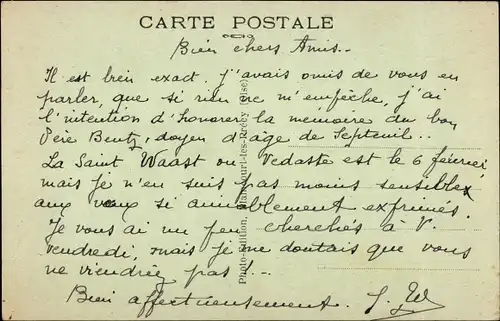 CARTE POSTALE
Bien chers Amis..
Il est bien exact. j'avais omis de vous en
parler, que si rien ne m'empêche, j'ai
l'intention d'honorer la mémoire du bon
Père Bentz, doyen d'âge de Septeuil..
La Saint Waast ou Vedaste est le 6 février
mais je n'en suis pas moins sensible
aux vœux si aimablement exprimés.
Je vous ai un peu cherchés à V.
vendredi, mais je me doutais que vous
ne viendriez pas !..
Bien affectueusement. J. W
Photo-Edition,